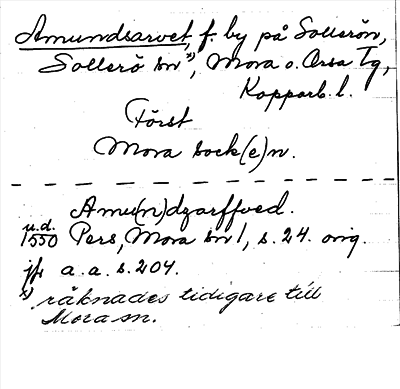 Amundsarvet, f. by på Sollerön,
Sollerö sn x), Mora o. Orsa Tg,
Kopparb. l.
Först
Mora sock(e)n.
Amu(n)dzarffved.
u.d. 1550 Pers, Mora sn 1, s. 24. orig.
jfr a. a. s. 204.
x) räknades tidigare till
Mora sn.